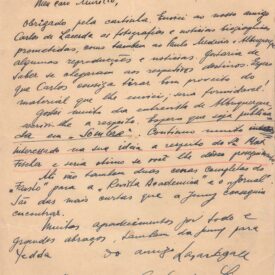 Meu caro Murilo,
Obrigado pela cartinha. Enviei ao nosso amigo
Carlos de Lacerda as fotografias e noticias biograficas
prometidas, como tambem ao Paulo Medeiros e Albuquerque
algumas reproduções e noticias. Gostaria de
saber se chegaram aos respectivos destinos. Espero
que Carlos consiga tirar bom proveito do
material que lhe enviei, seria formidavel.
Gostei muito da entrevista de Albuquerque
a respeito. Espero que seja publica
da em a . Continuo muito
interessado na sua idéia a respeito do
Fischer e seria otimo se você lhe désse
Ai vão tambem duas cenas completas do
"Fausto" para a "Revista Academica" e o "Jornal"
São das mais curtas que a Jenny conseguiu
encontrar.
Muitos agradecimentos por tudo e
grandes abraços, tambem da Jenny para
Yedda
do amigo Lasar Segall